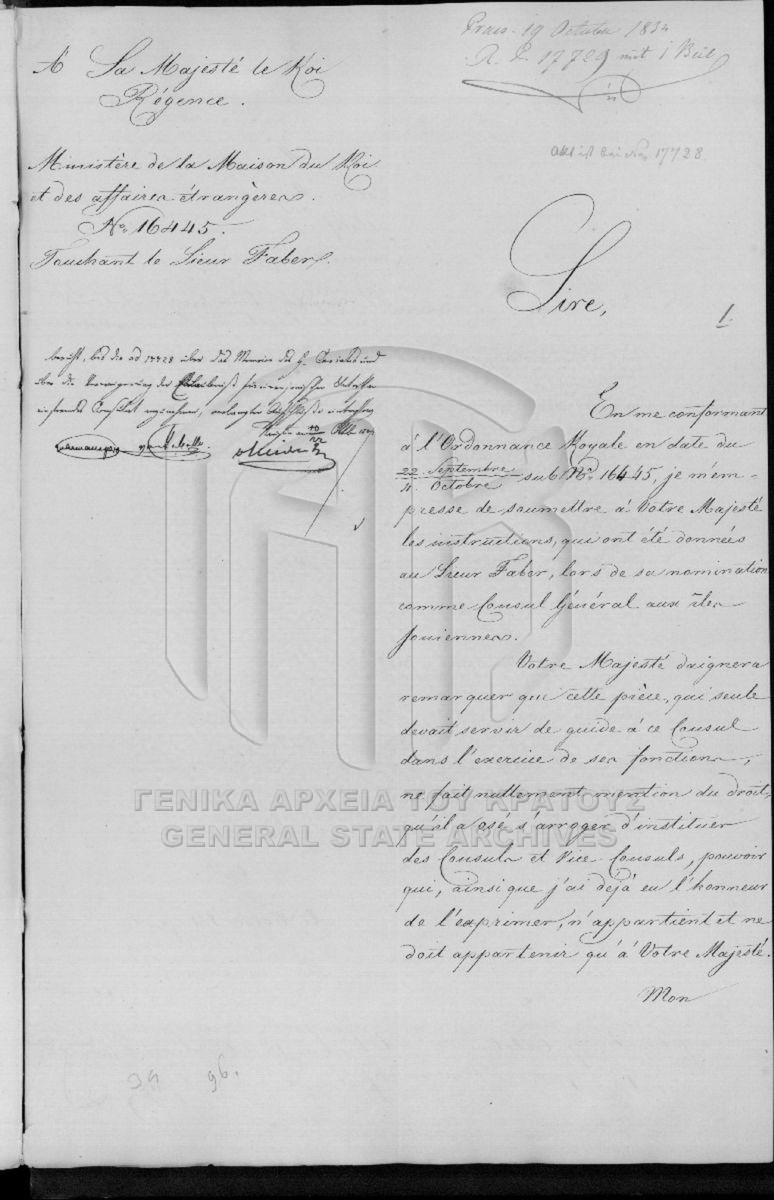 Praes. 19 October 1834
R. E. 17729 mit 1 Beil
À Sa Majesté le Roi
Régence.
Akt ist bei No. 17728.
Ministère de la Maison du Roi
et des affaires étrangères.
No. 16445.
Touchant le Sieur Faber.
Sire,
1.
En me conformant
à l'Ordonnance Royale en date du
22 Septembre
4. Octobre
sub No. 16445, je m'em-
presse de soumettre à Votre Majesté
les instructions, qui ont été données
au Sieur Faber, lors de sa nomination
comme Consul Général aux îles
Joniennes.
Votre Majesté daignera
remarquer que cette pièce, qui seule
devait servir de guide à ce Consul
dans l'exercice de ses fonctions,
ne fait nullement mention du droit,
qu'il a osé s'arroger d'instituer
des Consuls et Vice-Consuls, pouvoir
qui, ainsi que j'ai déjà eu l'honneur
de l'exprimer, n'appartient et ne
doit appartenir qu'à Votre Majesté.
Mon
ΓΕΝΙΚΑ ΑΡΧΕΙΑ ΤΟΥ ΚΡΑΤΟΥΣ
GENERAL STATE ARCHIVES
96.